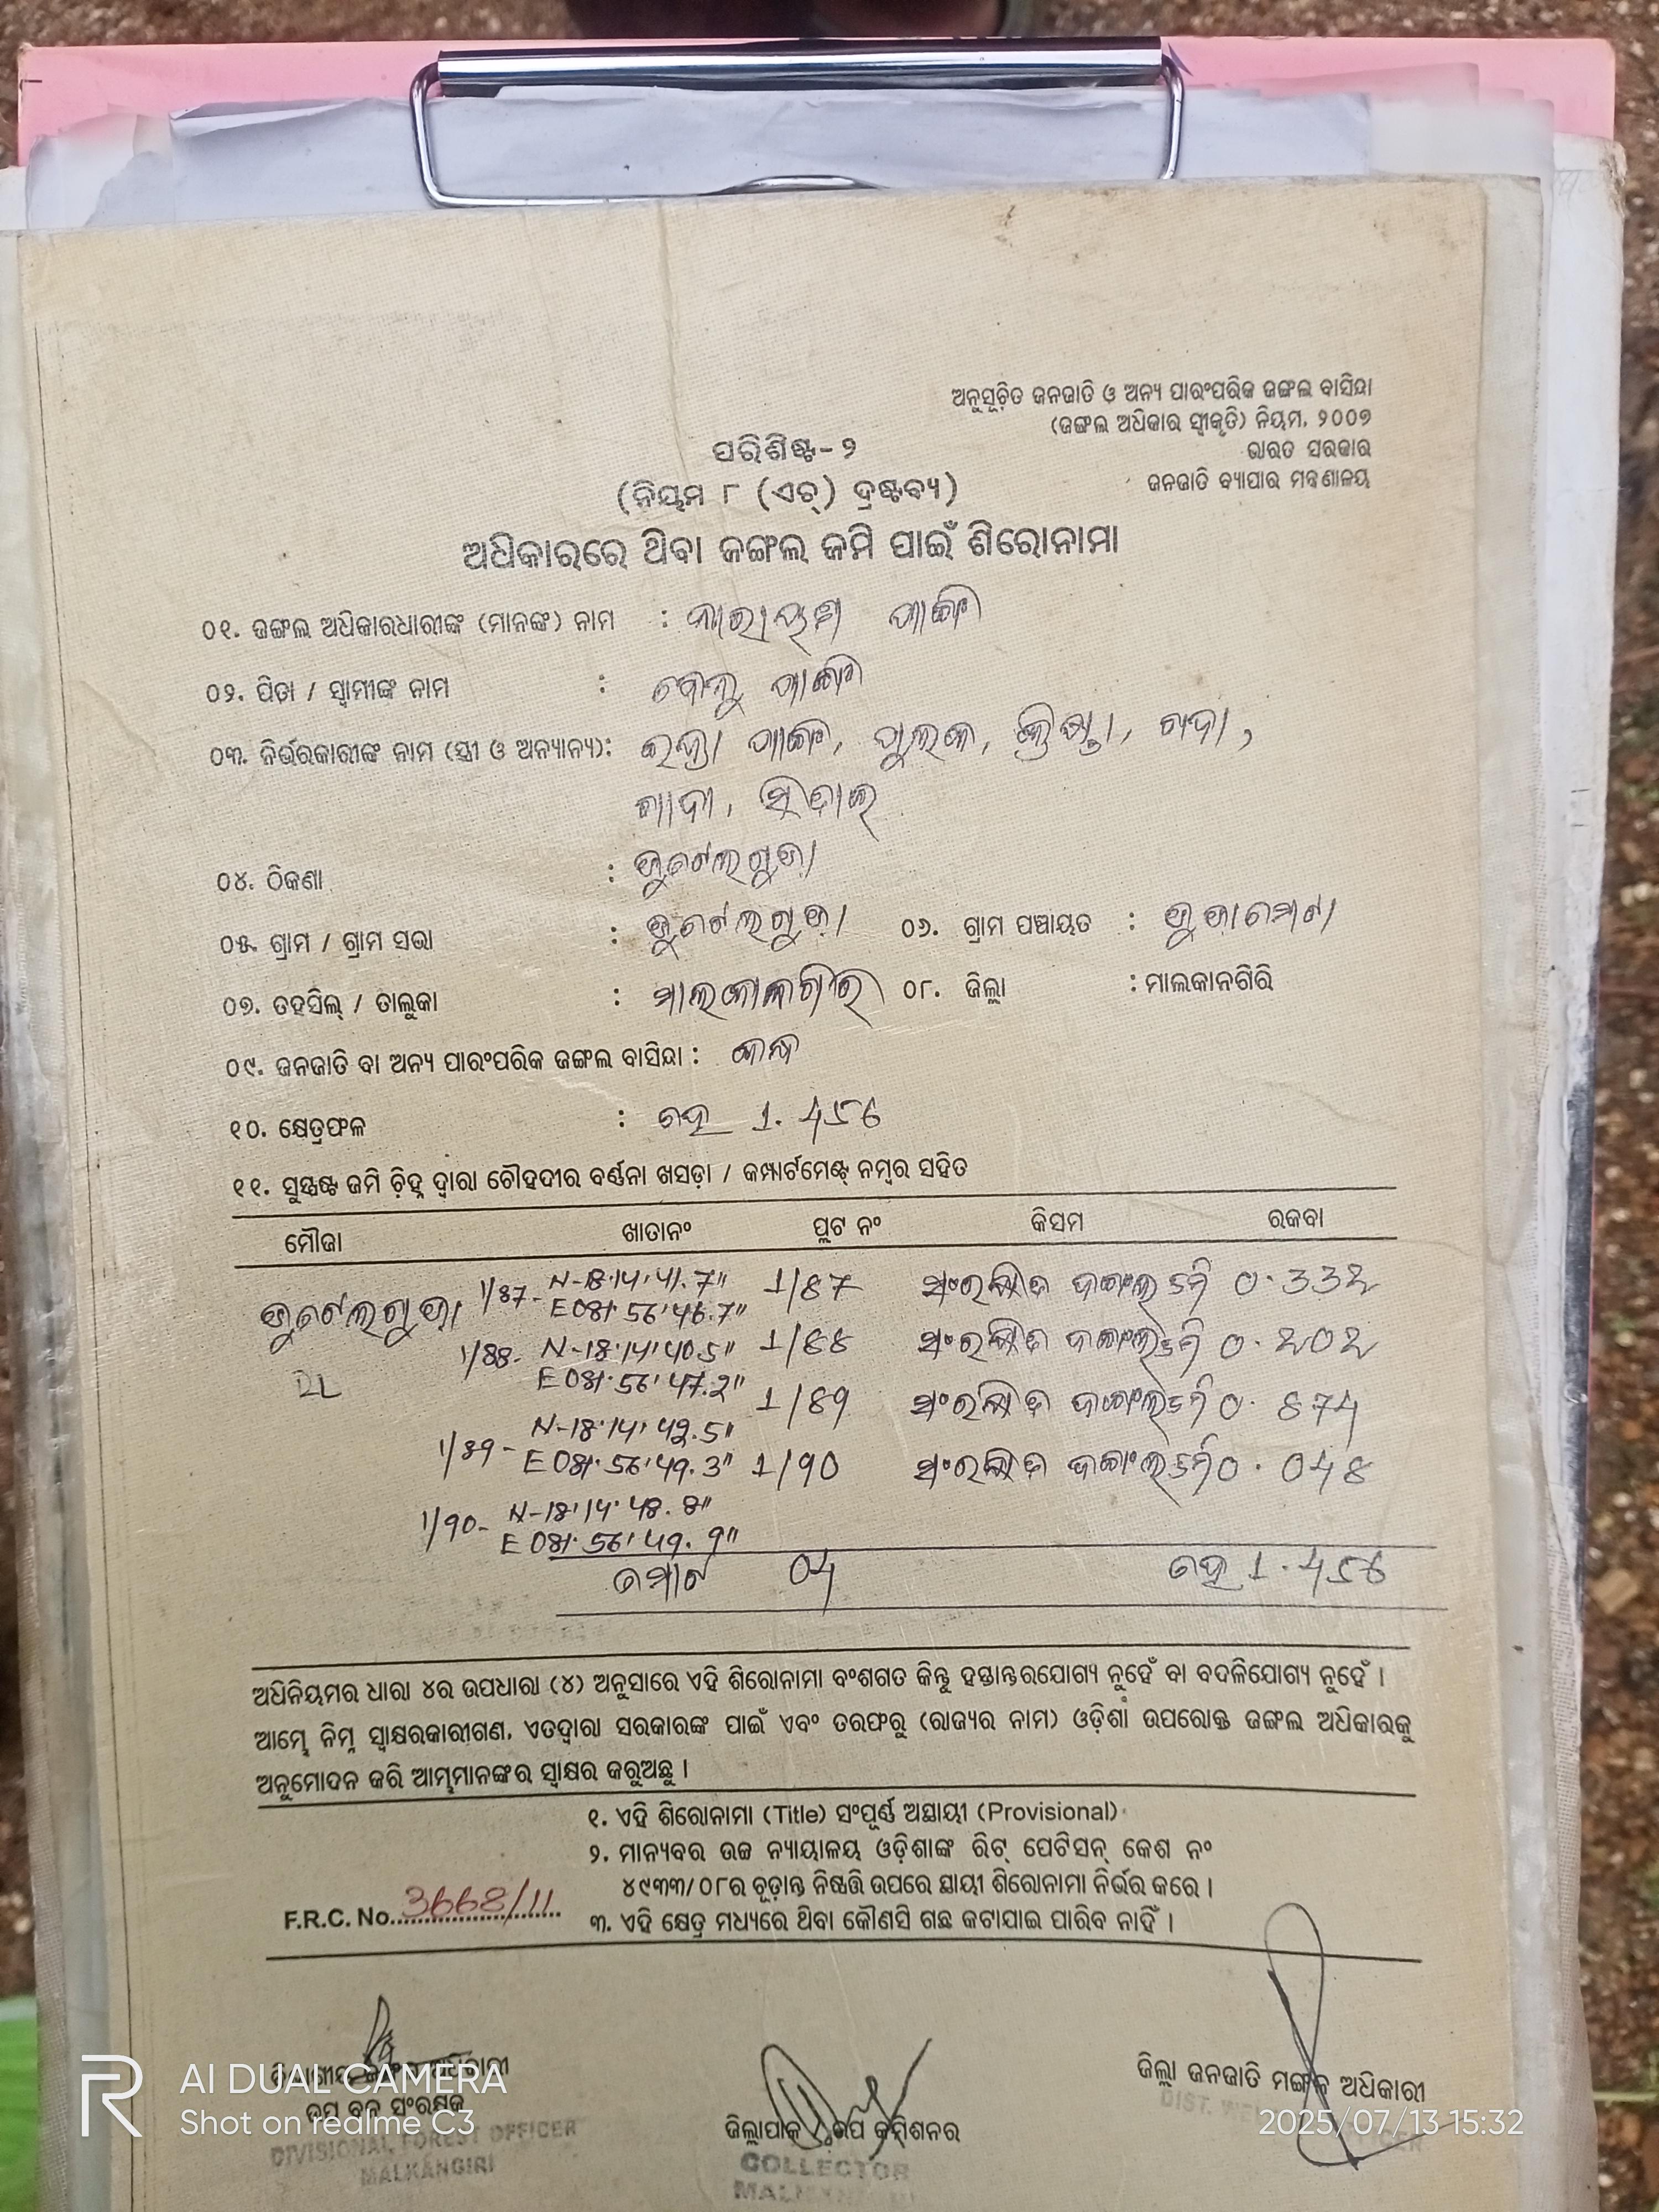 ଅନୁସୂଚିତ ଜନଜାତି ଓ ଅନ୍ୟ ପାରଂପରିକ ଜଙ୍ଗଲ ବାସିନ୍ଦା
(ଜଙ୍ଗଲ ଅଧିକାର ସ୍ୱୀକୃତି) ନିୟମ, ୨୦୦୭
ଭାରତ ସରକାର
ଜନଜାତି ବ୍ୟାପାର ମନ୍ତ୍ରଣାଳୟ
ପରିଶିଷ୍ଟ-୨
(ନିୟମ ୮ (ଏଚ୍) ଦ୍ରଷ୍ଟବ୍ୟ)
ଅଧିକାରରେ ଥିବା ଜଙ୍ଗଲ ଜମି ପାଇଁ ଶିରୋନାମା
୦୧. ଜଙ୍ଗଲ ଅଧିକାରଧାରୀଙ୍କ (ମାନଙ୍କ) ନାମ :
୦୨. ପିତା / ସ୍ୱାମୀଙ୍କ ନାମ :
୦୩. ନିର୍ଭରକାରୀଙ୍କ ନାମ (ସ୍ତ୍ରୀ ଓ ଅନ୍ୟାନ୍ୟ):
୦୪. ଠିକଣା :
୦୫. ଗ୍ରାମ / ଗ୍ରାମ ସଭା : ୦୬. ଗ୍ରାମ ପଞ୍ଚାୟତ :
୦୭. ତହସିଲ୍ / ତାଲୁକା : ମାଲକାନଗିରି ୦୮. ଜିଲ୍ଲା : ମାଲକାନଗିରି
୦୯. ଜନଜାତି ବା ଅନ୍ୟ ପାରଂପରିକ ଜଙ୍ଗଲ ବାସିନ୍ଦା : କନ୍ଧ
୧୦. କ୍ଷେତ୍ରଫଳ : ହେ 1.456
୧୧. ସୁସ୍ପଷ୍ଟ ଜମି ଚିହ୍ନ ଦ୍ୱାରା ଚୌହଦୀର ବର୍ଣ୍ଣନା ଖସଡ଼ା / କମ୍ପାର୍ଟମେଣ୍ଟ୍ ନମ୍ବର ସହିତ
ମୌଜା ଖାତାନଂ ପ୍ଲଟ ନଂ କିସମ ରକବା
1/87- N-18°14'41.7" 1/87 ସଂରକ୍ଷିତ ଜଙ୍ଗଲ ଜମି 0.332
E 081°56'46.7"
1/88- N-18°14'40.5" 1/88 ସଂରକ୍ଷିତ ଜଙ୍ଗଲ ଜମି 0.202
E 081°56'47.2"
N-18°14'42.5" 1/89 ସଂରକ୍ଷିତ ଜଙ୍ଗଲ ଜମି 0.874
1/89- E 081°56'49.3" 1/90 ସଂରକ୍ଷିତ ଜଙ୍ଗଲ ଜମି 0.048
1/90- N-18°14'48.8"
E 081°56'49.9"
ମୋଟ 04 ହେ 1.456
ଅଧିନିୟମର ଧାରା ୪ର ଉପଧାରା (୪) ଅନୁସାରେ ଏହି ଶିରୋନାମା ବଂଶଗତ କିନ୍ତୁ ହସ୍ତାନ୍ତରଯୋଗ୍ୟ ନୁହେଁ ବା ବଦଳିଯୋଗ୍ୟ ନୁହେଁ ।
ଆମ୍ଭେ ନିମ୍ନ ସ୍ୱାକ୍ଷରକାରୀଗଣ, ଏତଦ୍ୱାରା ସରକାରଙ୍କ ପାଇଁ ଏବଂ ତରଫରୁ (ରାଜ୍ୟର ନାମ) ଓଡ଼ିଶା ଉପରୋକ୍ତ ଜଙ୍ଗଲ ଅଧିକାରକୁ
ଅନୁମୋଦନ କରି ଆମ୍ଭମାନଙ୍କର ସ୍ୱାକ୍ଷର କରୁଅଛୁ ।
୧. ଏହି ଶିରୋନାମା (Title) ସଂପୂର୍ଣ୍ଣ ଅସ୍ଥାୟୀ (Provisional)
୨. ମାନ୍ୟବର ଉଚ୍ଚ ନ୍ୟାୟାଳୟ ଓଡ଼ିଶାଙ୍କ ରିଟ୍ ପେଟିସନ୍ କେଶ ନଂ
୪୯୩୩/୦୮ର ଚୂଡ଼ାନ୍ତ ନିଷ୍ପତ୍ତି ଉପରେ ସ୍ଥାୟୀ ଶିରୋନାମା ନିର୍ଭର କରେ ।
F.R.C. No. 3668/11
୩. ଏହି କ୍ଷେତ୍ର ମଧ୍ୟରେ ଥିବା କୌଣସି ଗଛ କଟାଯାଇ ପାରିବ ନାହିଁ ।
ଜିଲ୍ଲା ଜନଜାତି ମଙ୍ଗଳ ଅଧିକାରୀ
ବନ ସଂରକ୍ଷକ
DIVISIONAL FOREST OFFICER
MALKANGIRI
ଜିଲ୍ଲାପାଳ ଉପ କମିଶନର
COLLECTOR
AI DUAL CAMERA
Shot on realme C3
2025/07/13 15:32